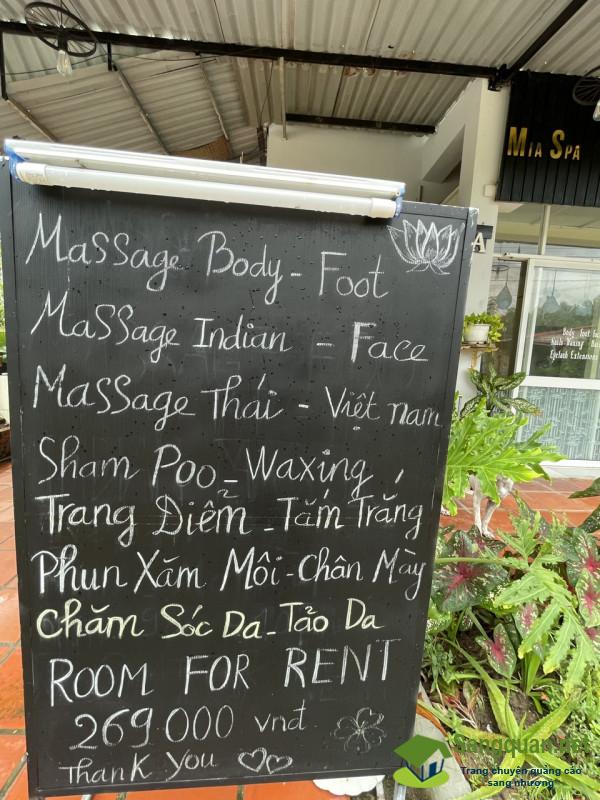 MIA SPA
Massage Body - Foot
Massage Indian - Face
Massage Thái - Việt nam
Sham Poo - Waxing
Trang Điểm - Tắm Trắng
Phun Xăm Môi - Chân Mày
Chăm Sóc Da - Tảo Da
ROOM FOR RENT
269.000 vnđ
Thank you
A
Body foot
Nails Waxing
Eyelash Extensions
Sangquan.net
Trang chuyên quảng cáo
sang nhượng